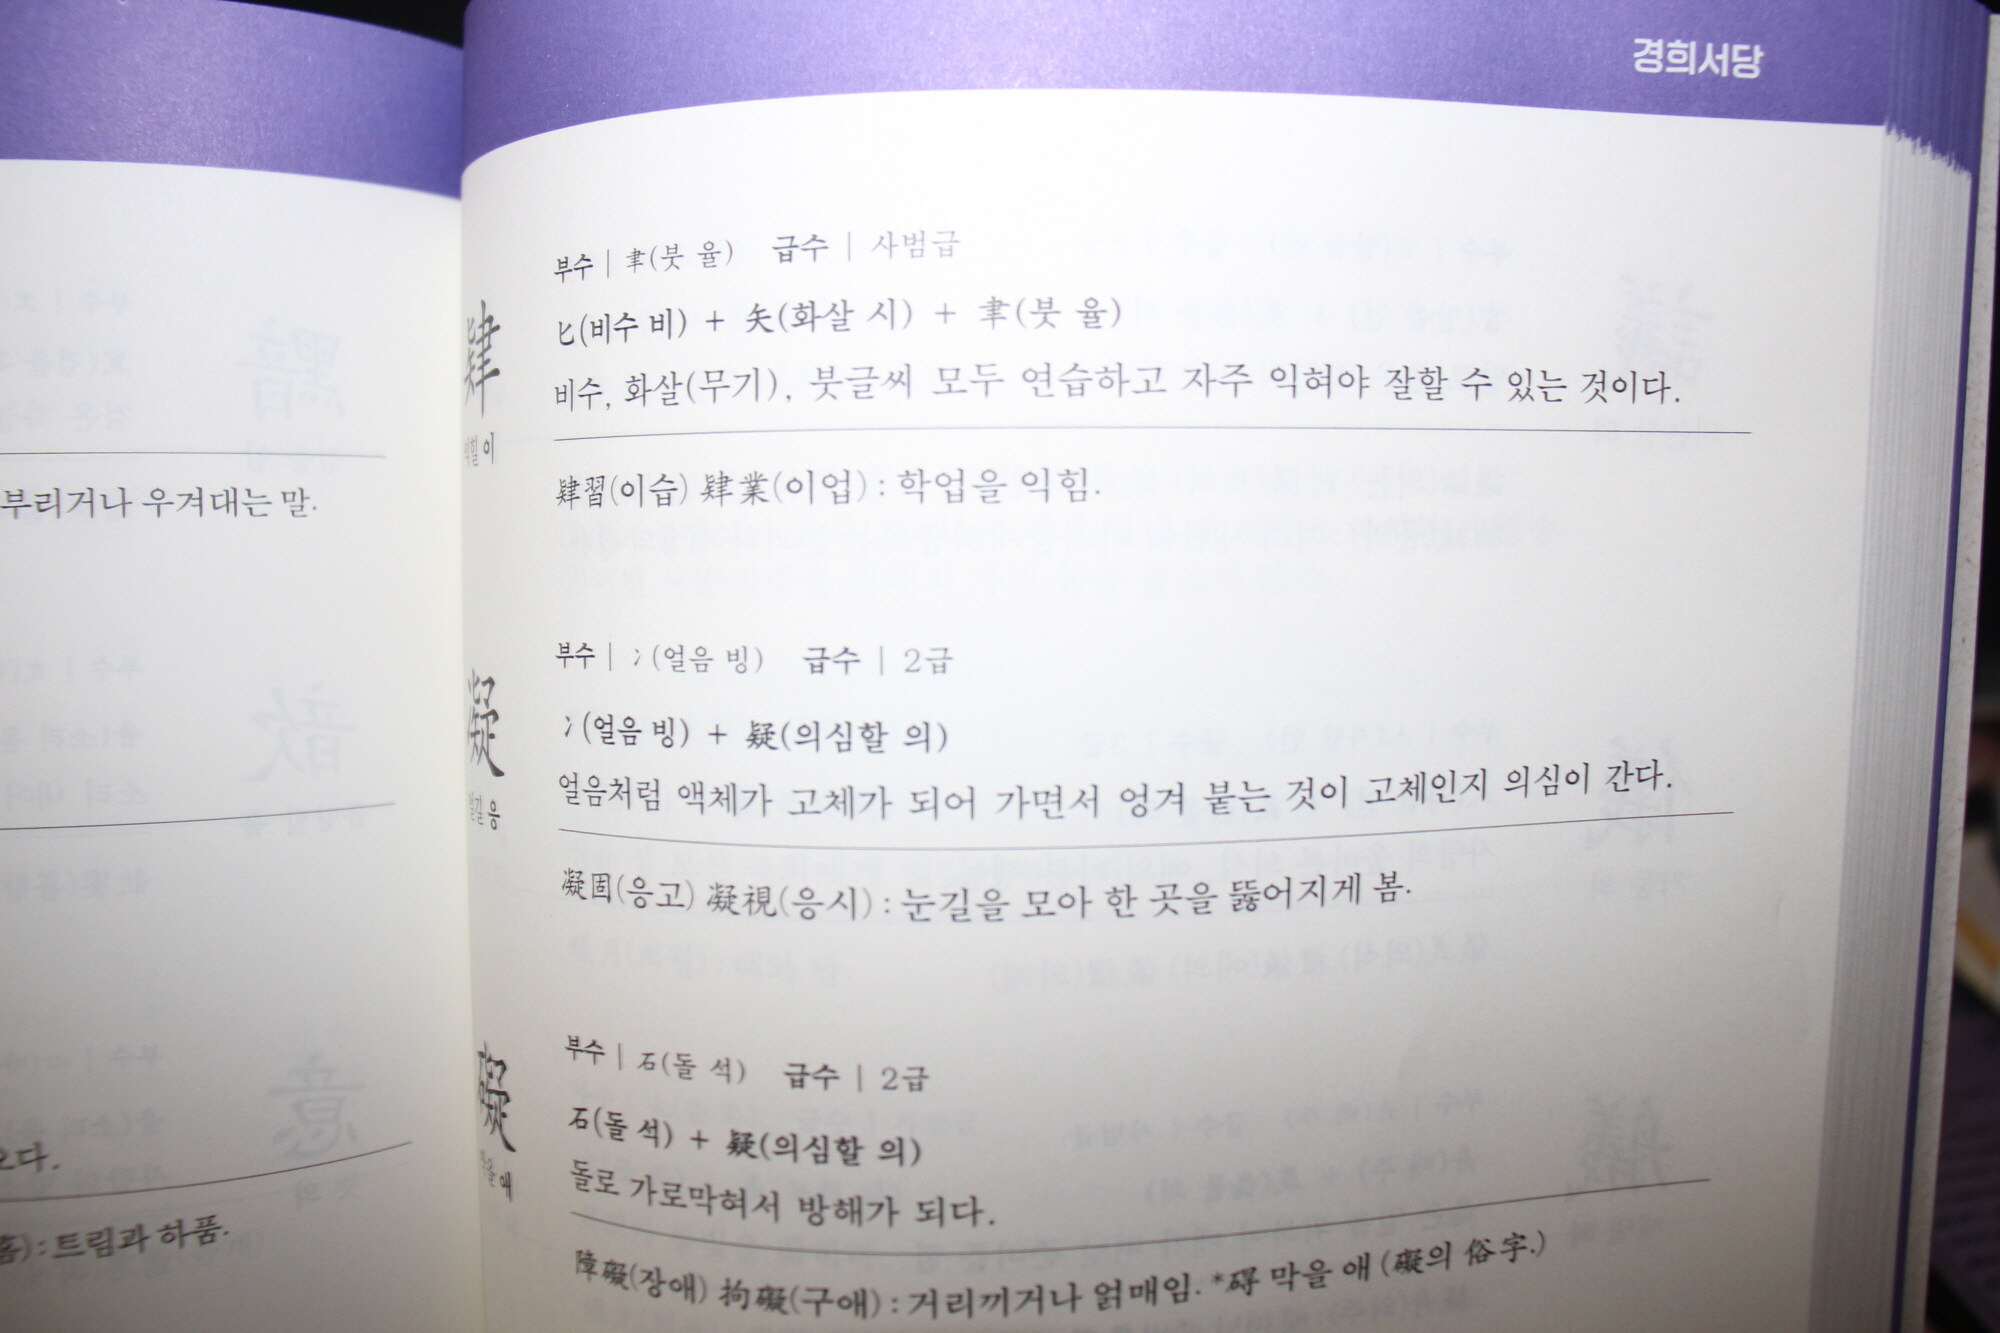 부리거나 우겨대는 말.
트림과 하품.
경희서당
부수 | 聿(붓 율) 급수 | 사범급
匕(비수 비) + 矢(화살 시) + 聿(붓 율)
비수, 화살(무기), 붓글씨 모두 연습하고 자주 익혀야 잘할 수 있는 것이다.
肄
익힐 이
肄習(이습) 肄業(이업) : 학업을 익힘.
부수 | 冫(얼음 빙) 급수 | 2급
冫(얼음 빙) + 疑(의심할 의)
얼음처럼 액체가 고체가 되어 가면서 엉겨 붙는 것이 고체인지 의심이 간다.
凝
응
凝固(응고) 凝視(응시) : 눈길을 모아 한 곳을 뚫어지게 봄.
부수 | 石(돌 석) 급수 | 2급
石(돌 석) + 疑(의심할 의)
돌로 가로막혀서 방해가 되다.
礙
막을 애
障礙(장애) 拘礙(구애) : 거리끼거나 얽매임. *碍 막을 애 (礙의 俗字.)